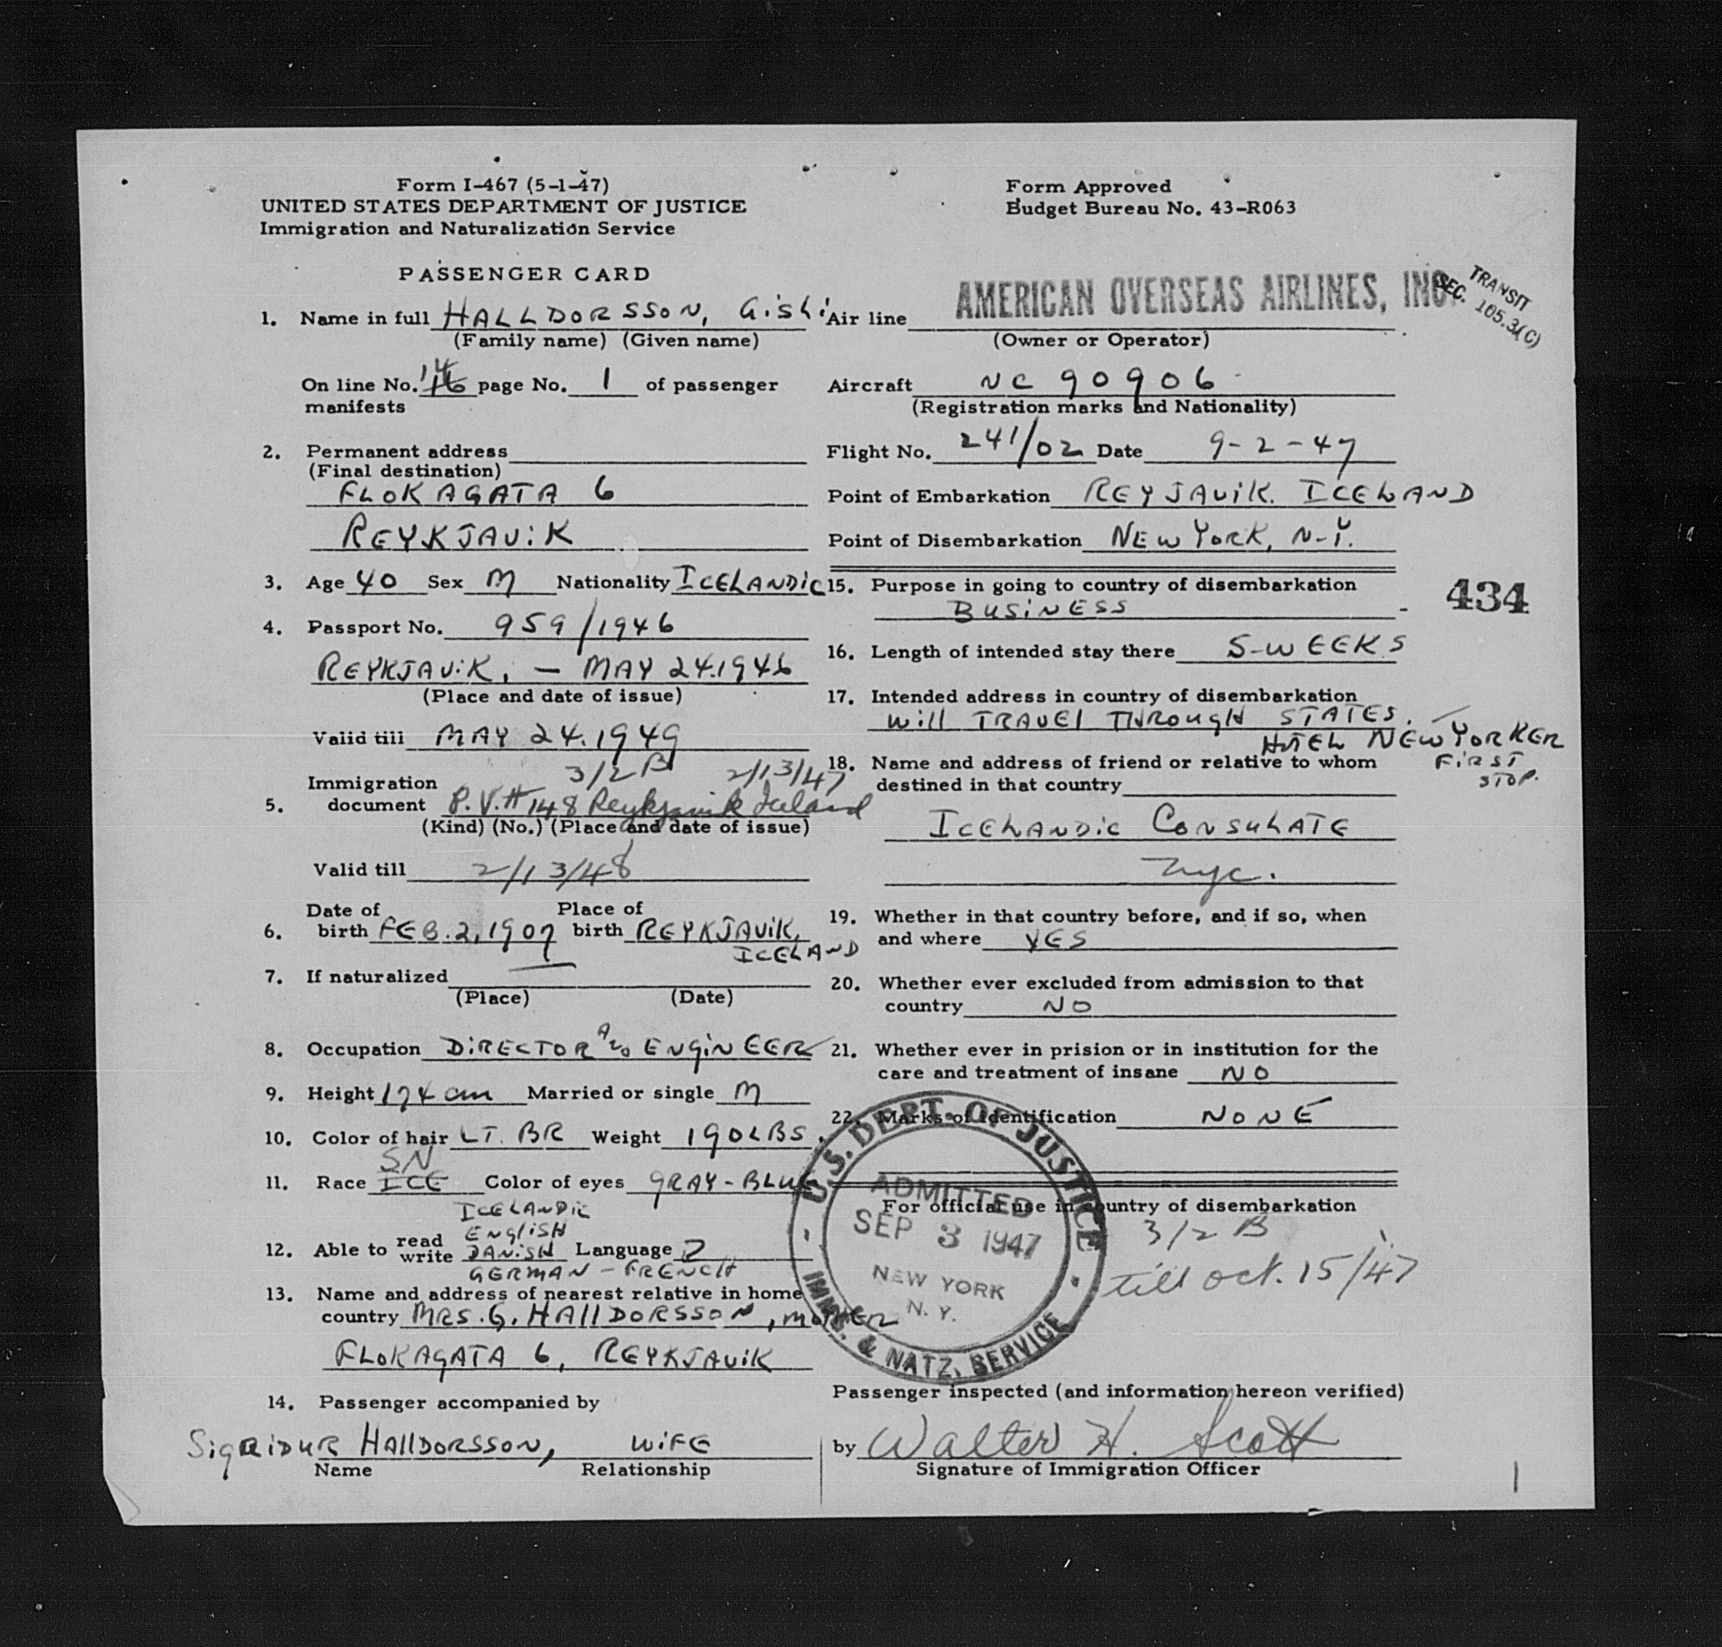 Form I-467 (5-1-47)
UNITED STATES DEPARTMENT OF JUSTICE
Immigration and Naturalization Service
Form Approved
Budget Bureau No. 43-R063
PASSENGER CARD
TRANSIT
SEC. 105.3(C)
1. Name in full HALLDORSSON, GiSLi
(Family name) (Given name)
On line No. 14 page No. 1 of passenger
manifests
2. Permanent address
(Final destination)
FLOKAGATA 6
REYKJAViK
3. Age 40 Sex M Nationality ICELANDiC
4. Passport No. 959/1946
REYKJAViK, - MAY 24.1946
(Place and date of issue)
Valid till MAY 24.1949
3/2 B 2/13/47
Immigration
5. document P.V.# 148 Reykjavik Iceland
(Kind) (No.) (Place and date of issue)
Valid till 2/13/48
Date of Place of
6. birth FEB.2,1907 birth REYKJAViK,
ICELAND
7. If naturalized —
(Place) (Date)
8. Occupation DiRECTOR AND ENGiNEER
9. Height 174 cm Married or single M
10. Color of hair LT. BR Weight 190 LBS.
SN
11. Race ICE Color of eyes GRAY-BLUE
ICELANDiC
ENGLiSH
12. Able to read write DANiSH Language
GERMAN - FRENCH
13. Name and address of nearest relative in home
country MRS. G. HAllDORSSON, MOTHER
FLOKAGATA 6, REYKJAViK
14. Passenger accompanied by
SiGRiDUR HAllDORSSON, WiFE
Name Relationship
Air line AMERICAN OVERSEAS AIRLINES, INC.
(Owner or Operator)
Aircraft NC 90906
(Registration marks and Nationality)
Flight No. 241/02 Date 9-2-47
Point of Embarkation REYJAViK. ICELAND
Point of Disembarkation NEW YORK, N-Y.
15. Purpose in going to country of disembarkation
BUSiNESS
434
16. Length of intended stay there 5-WEEKS
17. Intended address in country of disembarkation
Will TRAVEl THROUGH STATES. —
HOTEL NEW YORKER
FiRST
STOP.
18. Name and address of friend or relative to whom
destined in that country
ICELANDiC CONSULATE
nyc.
19. Whether in that country before, and if so, when
and where YES
20. Whether ever excluded from admission to that
country NO
21. Whether ever in prision or in institution for the
care and treatment of insane NO
22. Marks of identification NONE
For official use in country of disembarkation
3/2 B
till oct. 15/47
U.S. DEPT. OF JUSTICE
ADMITTED
SEP 3 1947
NEW YORK
N. Y.
IMMG. & NATZ. SERVICE
Passenger inspected (and information hereon verified)
by Walter H. Scott
Signature of Immigration Officer
1